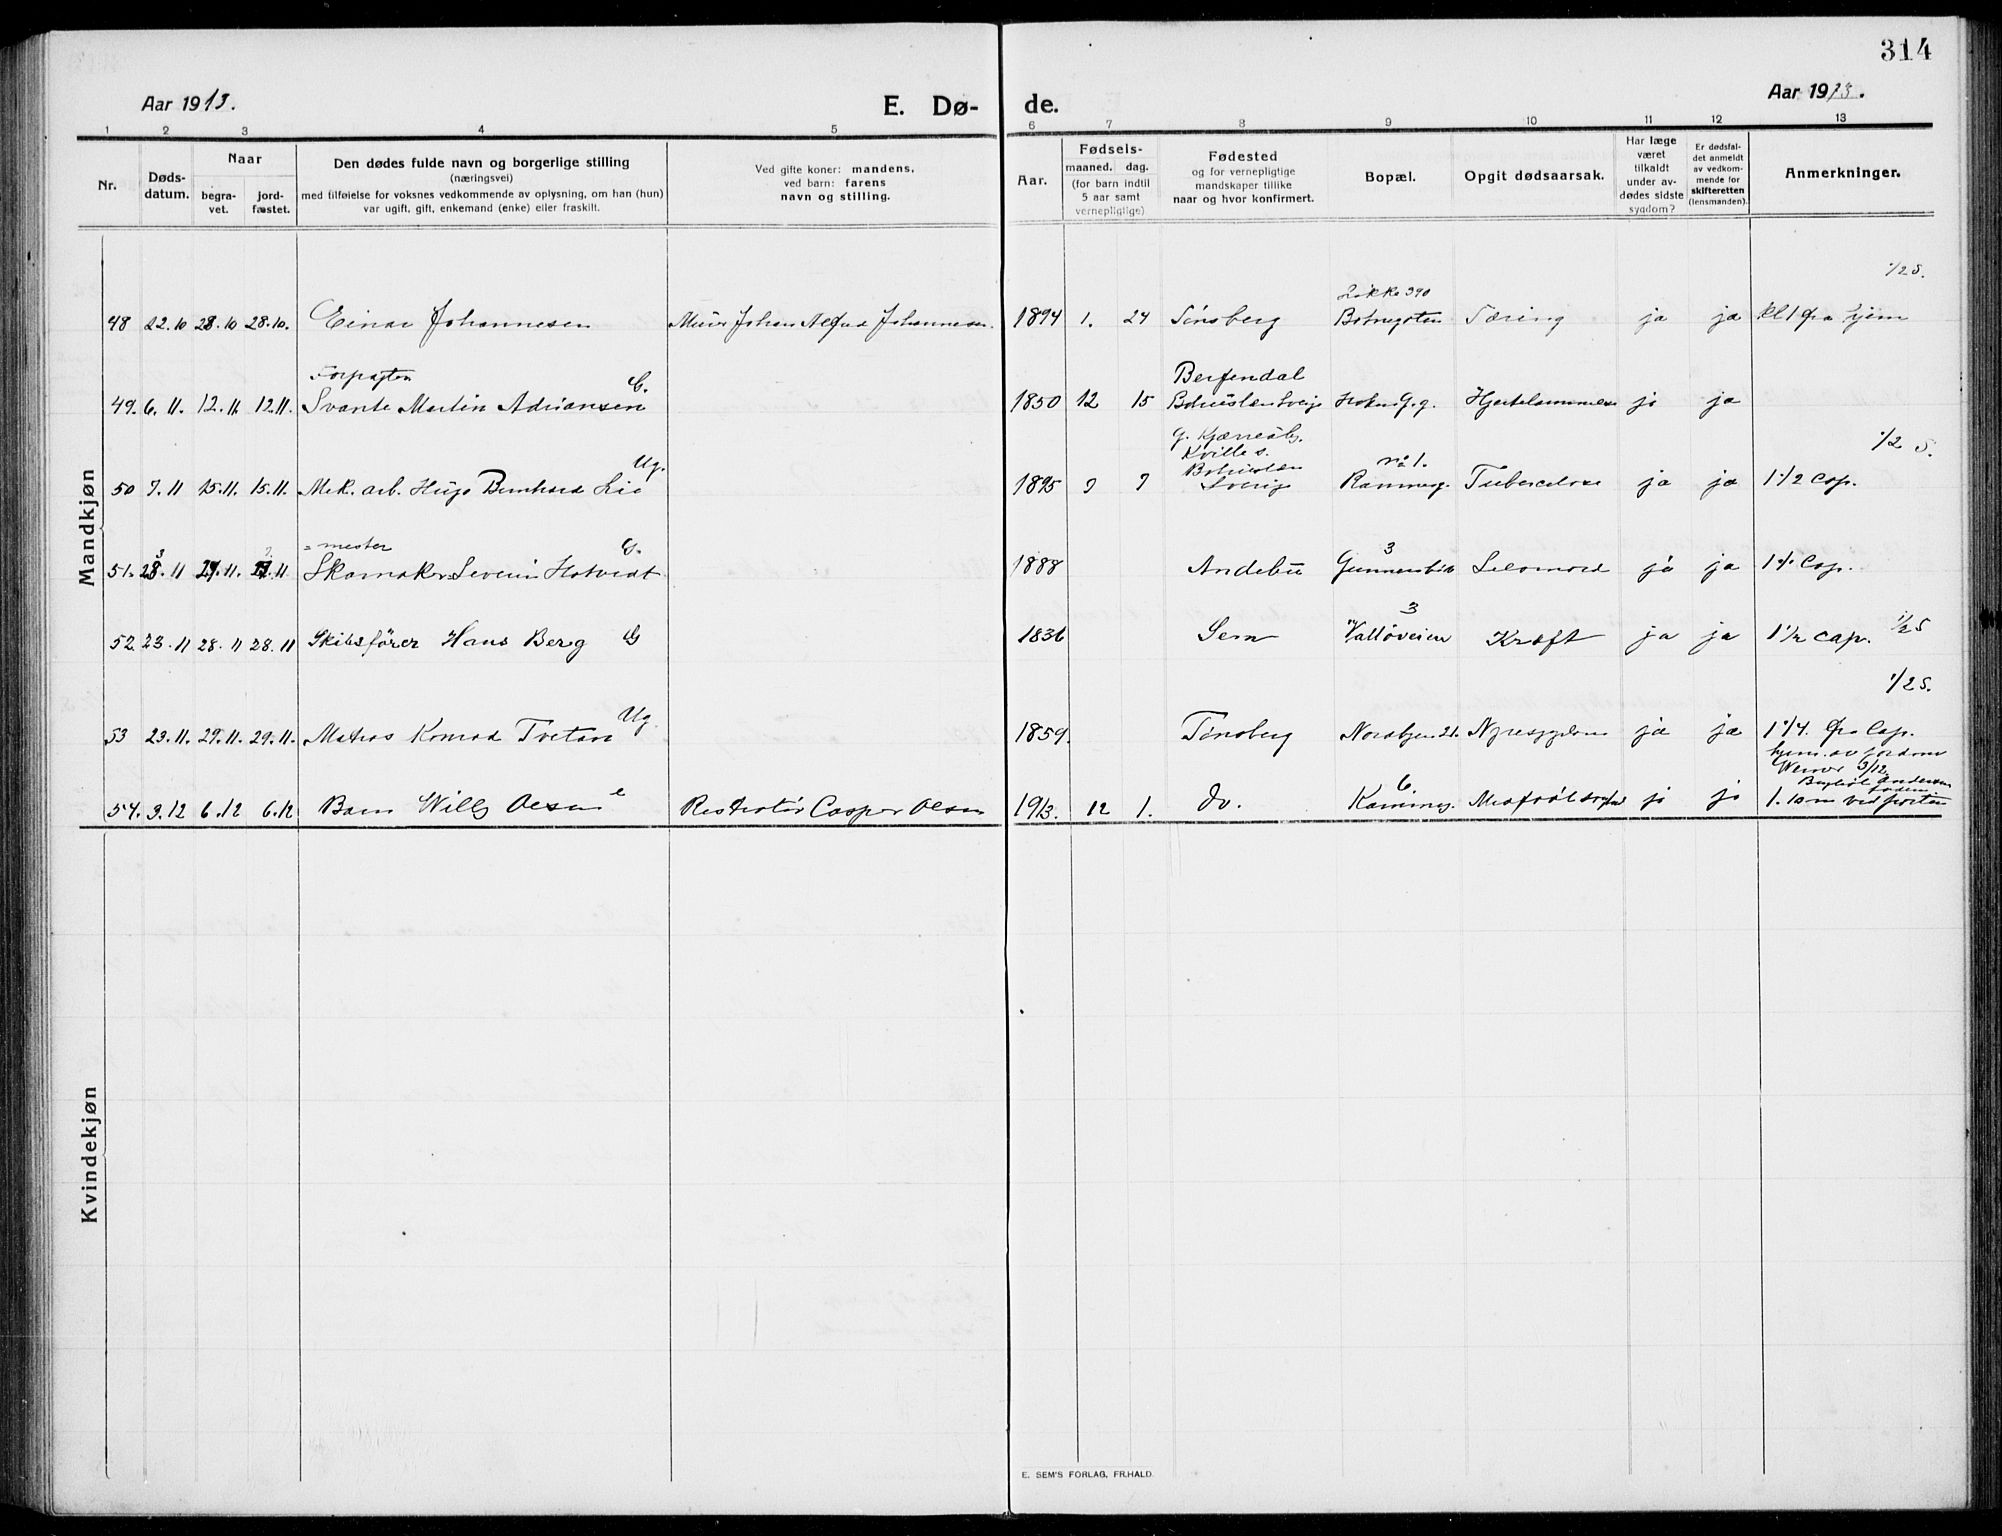 314
Aar 1913.
E. Dø-
de.
Aar 1913.
1 2 3 4 5 6 7 8 9 10 11 12 13
Nr.
Døds-
datum.
Naar
begra-
vet.
jord-
fæstet.
Den dødes fulde navn og borgerlige stilling
(næringsvei)
med tilføielse for voksnes vedkommende av oplysning, om han (hun)
var ugift, gift, enkemand (enke) eller fraskilt.
Ved gifte koner: mandens,
ved barn: farens
navn og stilling.
Aar.
Fødsels-
maaned. dag.
(for barn indtil
5 aar samt
vernepligtige)
Fødested
og for vernepligtige
mandskaper tillike
naar og hvor konfirmert.
Bopæl.
Opgit dødsaarsak.
Har læge
været
tilkaldt
under av-
dødes sidste
sygdom?
Er dødsfal-
det anmeldt
av vedkom-
mende for
skifteretten
(lensmanden).
Anmerkninger.
Mandkjøn
1/2 S.
Løkke 390
48 22.10 28.10 28.10. Einar Johannesen Murer Johan Alfred Johannesen. 1894 1. 24 Tønsberg Tæring ja ja kl 1 fra hjem
Forpagter G. Berfendal
49. 6.11. 12.11. 12.11. Svante Martin Adriansen 1850 12 15 Bohuslen Sverige ja ja
Kville s. 1/2 S.
Ug. Bohuslen no 1.
50 7.11 15.11. 15.11. Mek. arb. Hugo Bernhard Lie 1895 9 7 Sverige Tuberculose ja ja 1 1/2 Cap.
= mester G. 3
51. 11 11. 11 Skomaker Severin Hotvedt 1888 Andebu Selvmord ja ja Cap.
3
52. 23.11 28.11 28.11 Skibsfører Hans Berg G 1836 Sem Valløveien Kræft ja ja 1 1/2 Cap. 1/2 S
Ug. 1/2 S.
53 23.11. 29.11. 29.11. Matros Konrad Tvetan 1859. Tønsberg Nordbyen 21. Nyresygdom ja ja 1 1/4. fra Cap.
6.
54. 3.12 6.12 6.12 Barn Willy Olsen e Restratør Casper Olsen 1913. 12 1. do. ja ja 1. 10 m ved porten
Kvindekjøn
E. SEM'S FORLAG, FR.HALD.